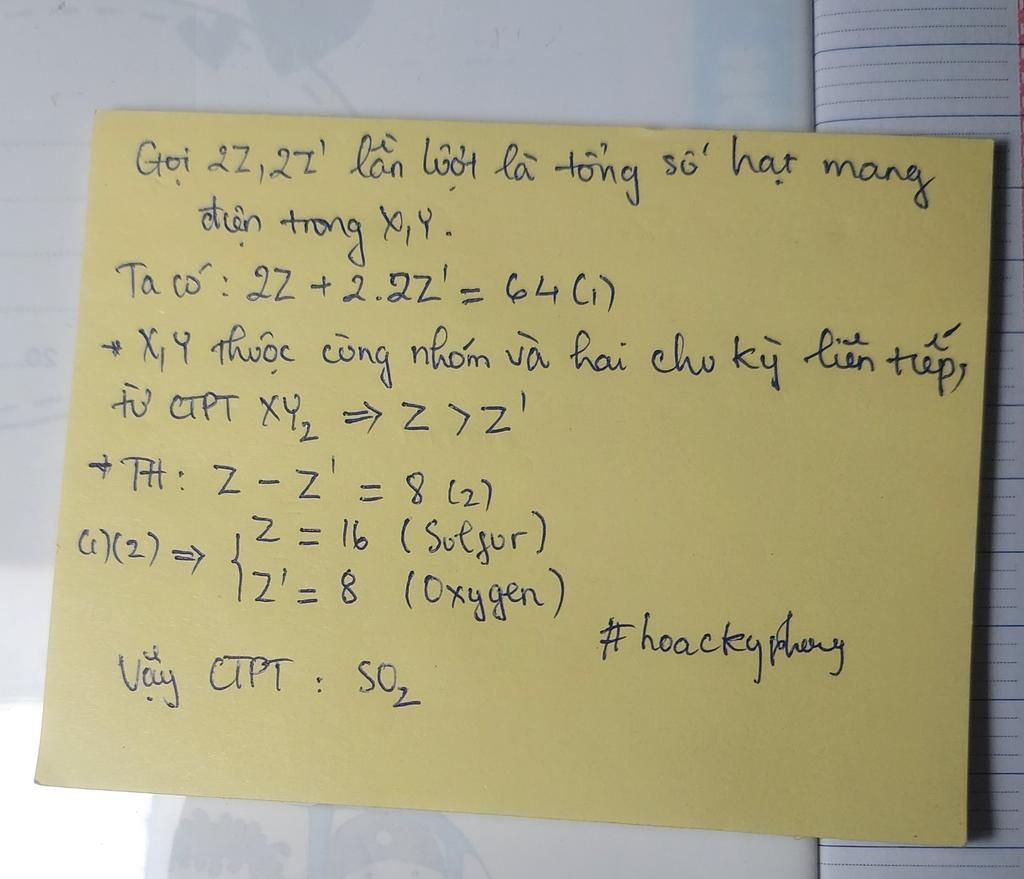 Gọi 2Z, 2Z' lần lượt là tổng số hạt mang
điện trong X, Y.
Ta có: 2Z + 2.2Z' = 64 (1)
+ X, Y thuộc cùng nhóm và hai chu kỳ liên tiếp,
từ CTPT XY₂ => Z > Z'
+ TH: Z - Z' = 8 (2)
(1)(2) => { Z = 16 (Sulfur)
Z' = 8 (Oxygen)
#hoackyphong
Vậy CTPT : SO₂